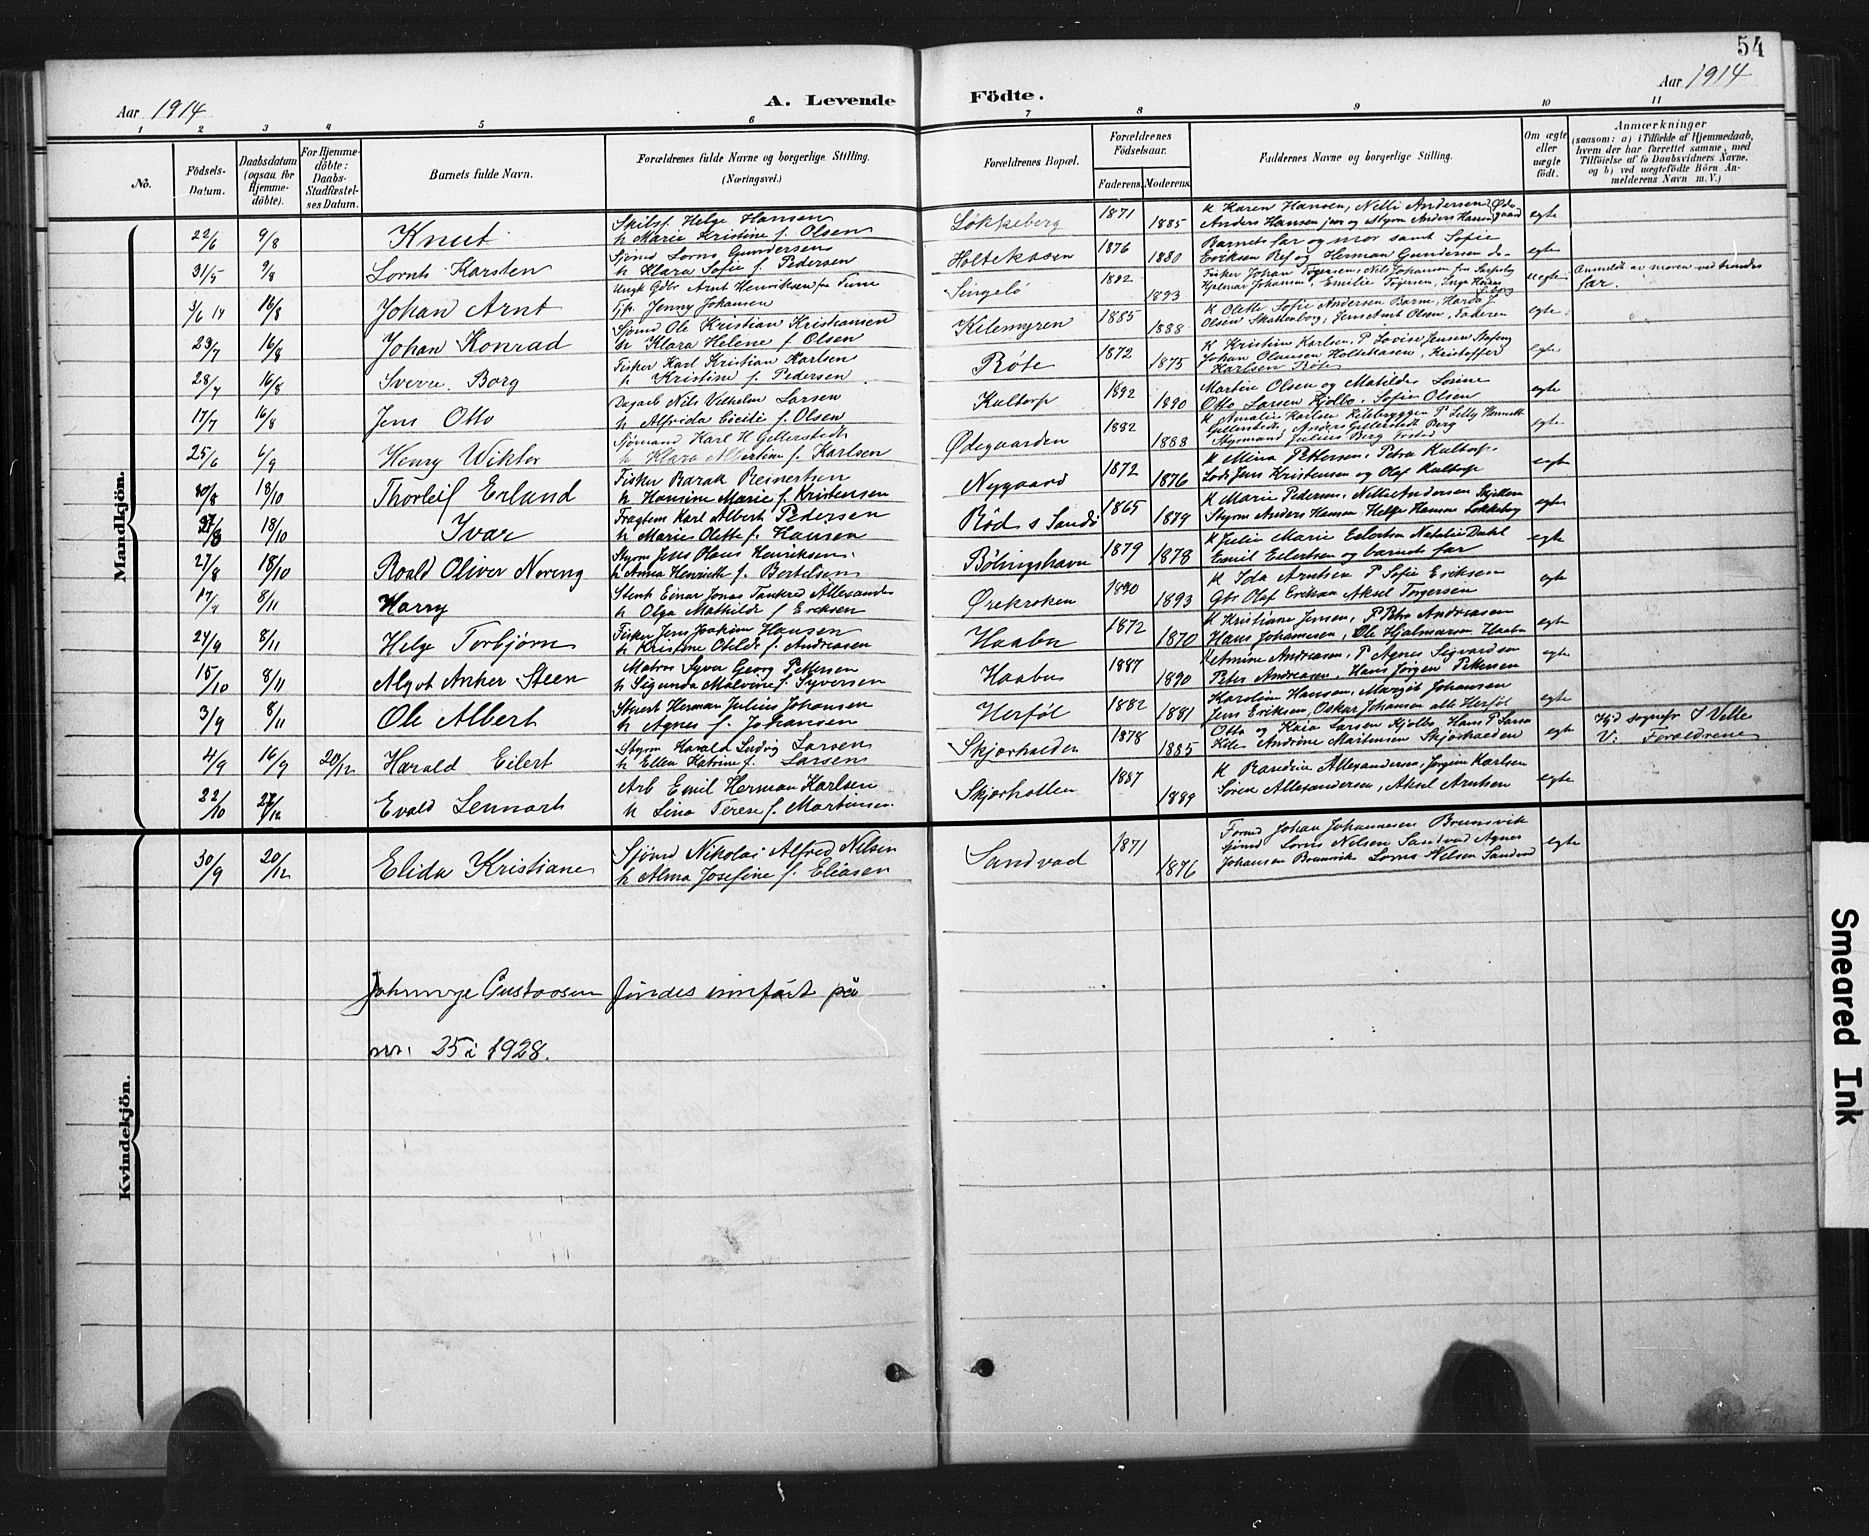 54
Aar 1914
A. Levende Födte.
Aar 1914
1 2 3 4 5 6 7 8 9 10 11
No.
Födsels-Datum.
Daabsdatum (ogsaa for Hjemme-döbte).
For Hjemme-döbte: Daabs-Stadfæstel-ses Datum.
Barnets fulde Navn.
Forældrenes fulde Navne og borgerlige Stilling. (Næringsvei.)
Forældrenes Bopæl.
Forældrenes Födselsaar.
Faderens. Moderens.
Faddernes Navne og borgerlige Stilling.
Om ægte eller uægte födt.
Anmærkninger
(saasom: a) i Tilfælde af Hjemmedaab, hvem der har forrettet samme, med Tilföielse af to Daabsvidners Navne, og b) ved uægtefödte Börn An-melderens Navn m. V.)
Mandkjön.
22/6 9/8 Knut Skibsf. Helge Hansen
h Marie Kristine f. Olsen Løkkeberg 1871 1885 K Karen Hansen, Nelli Andersen
Anders Hansen jun og Styrm Anders Hansen egte
31/5 9/8 Lornts Karsten Sjømd Lorns Gundersen
h Klara Sofie f. Pedersen Holtekasen 1876 1880 Barnets far og mor samt Sofie
Eriksen Ref og Herman Gundersen egte
3/6 14 16/8 Johan Arnt Ungk Gdbr Arnt Henriksen fra Tune
Jenny Johansen Singelö 1893 Fisker Johan Torgersen, Nils Johansen
Hjalmar Johansen, Emilie Torgersen, Inga uegte Anmeldt av moren ved
far.
29/7 16/8 Johan Konrad Sjømd Ole Kristian Kristiansen
h Klara Helene f Olsen Kilemyren 1885 1888 K Olette Sofie Andersen
Olsen Skattenborg, Jens Arnt Olsen, Faderen egte
28/7 16/8 Sverre Borg Fisker Karl Kristian Karlsen
h Kristine f. Pedersen Röte 1872 1875 K Kristine Karlsen, P Lovise Jensen
Johan Olausen Holtekasen, Kristoffer
Karlsen Röte egte
17/7 16/8 Jens Otto Dagarb Nils Vilhelm Larsen
h Alfrida f. Olsen Kaltorp 1892 1890 Martin Olsen og Matilde
Otto Larsen Kjølbo, Sofie Olsen egte
25/6 6/9 Henry Wiktor Sjømand Karl H Gellerstedt
h Klara Albertine f. Karlsen Ødegaarden 1882 1888 K Amalie Karlsen P Lilly
Gellerstedt, Anders Gellerstedt Berg
Styrmand Julius Berg egte
30/8 18/10 Thorleif Erland Fisker Barak Reinertsen
h Hansine Marie f. Kristensen Nygaard 1872 1876 K Mina Pettersen, Petra Kaltorp,
Lods Jens Kristensen og Olaf Kaltorp egte
27/8 18/10 Ivar Fragtem Karl Albert Pedersen
h Marie Olette f. Hansen Röd s Sandö 1865 1879 K Marie Pedersen, Nelli Andersen
Styrm Anders Hansen Helge Hansen Løkkeberg egte
27/8 18/10 Roald Oliver Noreng Styrm Jens Hans Henriksen
h Anna Henriette f. Bertelsen Bölingshavn 1879 1878 K Julie Marie Eilertsen Natalie Dahl
Emil Eilertsen og barnets far egte
8/11 Harry Einar Jonas Tankred Allexander
h Olga Mathilde f Eriksen Ørekroken 1890 1893 K Ida Arntsen P Sofie Eriksen
Gbr Olaf Eriksen Aksel Torgersen egte
24/9 8/11 Helge Torbjörn Fisker Jens Joakim Hansen
h Kristine Otilde f. Andreasen Haabu 1872 1870 K Kristiane Jensen, P Petra Andreasen
Hans Johannesen, Ole Hjalmarsen Haabu egte
15/10 8/11 Algot Anker Steen Matros Syver Georg Pettersen
h Sigunda Malvine f. Syversen Haabu 1887 1890 Armine Andreasen, P Agnes Sigvardsen
Peter Andreasen, Hans Jörgen Pettersen egte
3/9 8/11 Ole Albert Stuert Herman Julius Johansen
h Agnes f. Johansen Herföl 1882 1881 Karoline Hansen, Margit Johansen
Jens Eriksen, Oskar Johansen alle Herföl egte
4/9 16/9 20/12 Harald Eilert Styrm Harald Ludvig Larsen
h Ellen Katrine f. Larsen Skjærhalden 1878 1885 Otto og Kaia Larsen Kjølbo, Hans P Larsen
Andrine Martinsen Skjærhalden egte Hjd sognepr. J Velle
V: Forældrene
22/10 27/12 Evald Lennart Arb Emil Herman Karlsen
h Lina Terese f. Martinsen Skjærhallen 1887 1889 K Allexandersen, Jörgine Karlsen
Sören Allexandersen, Aksel Arntsen egte
Kvindekjön.
30/9 20/12 Elida Kristiane Sjömd Nikolai Alfred Nilsen
h Alma Josefine f. Eliasen Sandvad 1871 1876 Johan Johannesen Brunsvik
Sjömd Lorns Nilsen Sandvad Agnes
Johansen Brunsvik Lorns Nilsen Sandvad egte
Gustavsen findes innført på
nr. 25 i 1928.
Smeared Ink